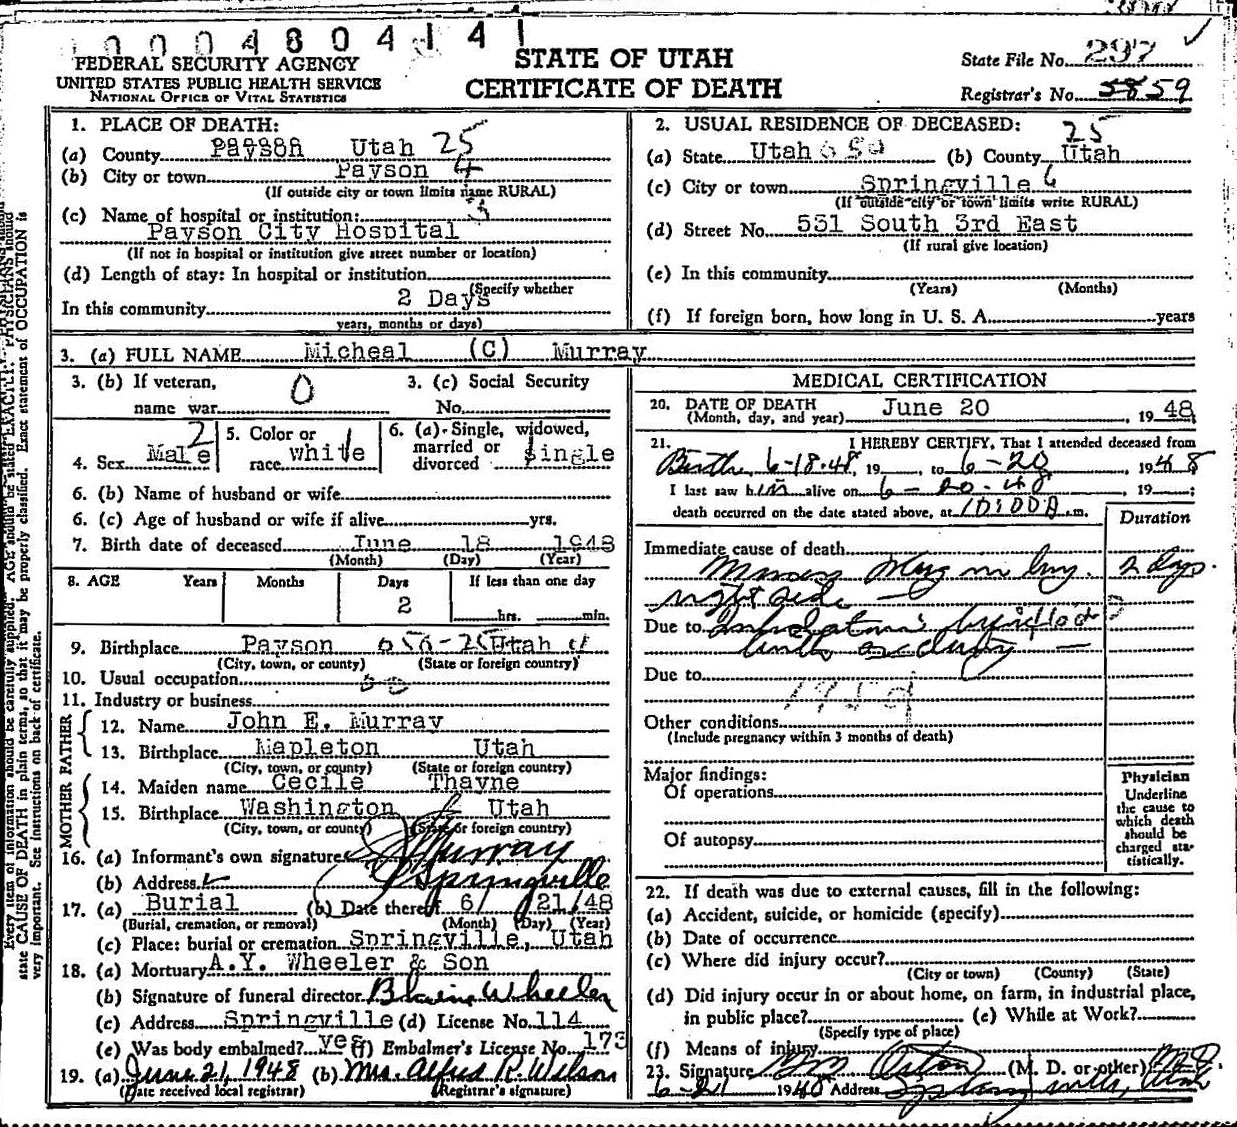 0004804141
FEDERAL SECURITY AGENCY
UNITED STATES PUBLIC HEALTH SERVICE
NATIONAL OFFICE OF VITAL STATISTICS
STATE OF UTAH
CERTIFICATE OF DEATH
State File No. 297
Registrar's No. 5859
1. PLACE OF DEATH:
(a) County Payson Utah 25
(b) City or town Payson 4
(If outside city or town limits name RURAL)
(c) Name of hospital or institution: 3
Payson City Hospital
(If not in hospital or institution give street number or location)
(d) Length of stay: In hospital or institution
(Specify whether
In this community 2 Days
years, months or days)
2. USUAL RESIDENCE OF DECEASED:
25
(a) State Utah (b) County Utah
(c) City or town Springville 6
(If outside city or town limits write RURAL)
(d) Street No. 531 South 3rd East
(If rural give location)
(e) In this community
(Years) (Months)
(f) If foreign born, how long in U. S. A. years
3. (a) FULL NAME Micheal (C) Murray
3. (b) If veteran, name war 0
3. (c) Social Security No.
4. Sex Male 2
5. Color or race white 1
6. (a) Single, widowed, married or divorced Single
6. (b) Name of husband or wife
6. (c) Age of husband or wife if alive yrs.
7. Birth date of deceased June 18 1948
(Month) (Day) (Year)
8. AGE Years Months Days If less than one day
2 hrs. min.
9. Birthplace Payson Utah
(City, town, or county) (State or foreign country)
10. Usual occupation
11. Industry or business
FATHER
12. Name John E. Murray
13. Birthplace Mapleton Utah
(City, town, or county) (State or foreign country)
MOTHER
14. Maiden name Cecile Thayne
15. Birthplace Washington Utah
(City, town, or county) (State or foreign country)
16. (a) Informant's own signature Murray
(b) Address Springville
17. (a) Burial (b) Date thereof 6/ 21/48
(Burial, cremation, or removal) (Month) (Day) (Year)
(c) Place: burial or cremation Springville, Utah
18. (a) Mortuary A.Y. Wheeler & Son
(b) Signature of funeral director Blaine Wheeler
(c) Address Springville (d) License No. 114
(e) Was body embalmed? yes (f) Embalmer's License No. 173
19. (a) June 21, 1948 (b) Mrs. Alfred R. Wilson
(Date received local registrar) (Registrar's signature)
MEDICAL CERTIFICATION
20. DATE OF DEATH June 20, 1948
(Month, day, and year)
21. I HEREBY CERTIFY, That I attended deceased from
Birth 6-18-48, 19 , to 6-20, 1948
I last saw him alive on 6-20-48, 19 ;
death occurred on the date stated above, at 10:00 A.m.
Duration
Immediate cause of death
2 days.
right side
Due to
Due to
Other conditions
(Include pregnancy within 3 months of death)
Major findings:
Of operations
Of autopsy
Physician
Underline
the cause to
which death
should be
charged sta-
tistically.
22. If death was due to external causes, fill in the following:
(a) Accident, suicide, or homicide (specify)
(b) Date of occurrence
(c) Where did injury occur?
(City or town) (County) (State)
(d) Did injury occur in or about home, on farm, in industrial place,
in public place? (e) While at Work?
(Specify type of place)
(f) Means of injury
23. Signature (M. D. or other) M.D.
6-21 1948 Address Springville, Utah
state CAUSE OF DEATH in plain terms, so that it may be properly classified. Exact statement of OCCUPATION is
very important. See instructions on back of certificate.